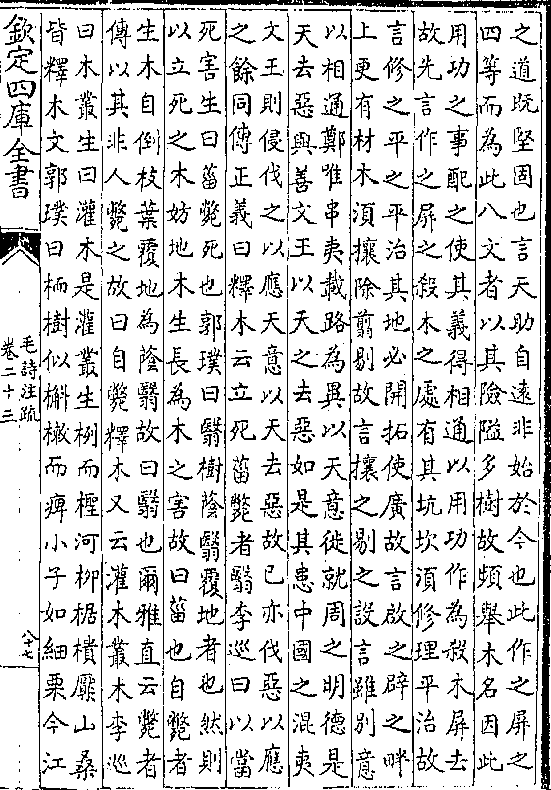 之道既堅固也言天助自遠非始於今也此作之屏之
四等而為此八文者以其險隘多樹故頻舉木名因此
用功之事配之使其義得相通以用功作為殺木屏去
故先言作之屏之殺木之處有其坑坎須修理平治故
言修之平之平治其地必開拓使廣故言啟之辟之畔
上更有材木須攘除翦剔故言攘之剔之設言雖别意
以相通鄭唯串夷載路為異以天意徙就周之明德是
天去惡與善文王以天之去惡如是其患中國之混夷
文王則侵伐之以應天意以天去惡故已亦伐惡以應
之餘同傳正義曰釋木云立死菑斃者翳李巡曰以當
死害生曰菑斃死也郭璞曰翳樹蔭翳覆地者也然則
以立死之木妨地木生長為木之害故曰菑也自斃者
生木自倒枝葉覆地為蔭翳故曰翳也爾雅直云斃者
傳以其非人斃之故曰自斃釋木又云灌木叢木李巡
曰木叢生曰灌木是灌叢生栵而檉河柳椐樻檿山桑
皆釋木文郭璞曰栭樹似槲樕而痺小子如細栗今江
欽定四庫全書
毛詩注疏
卷二十三
八十七